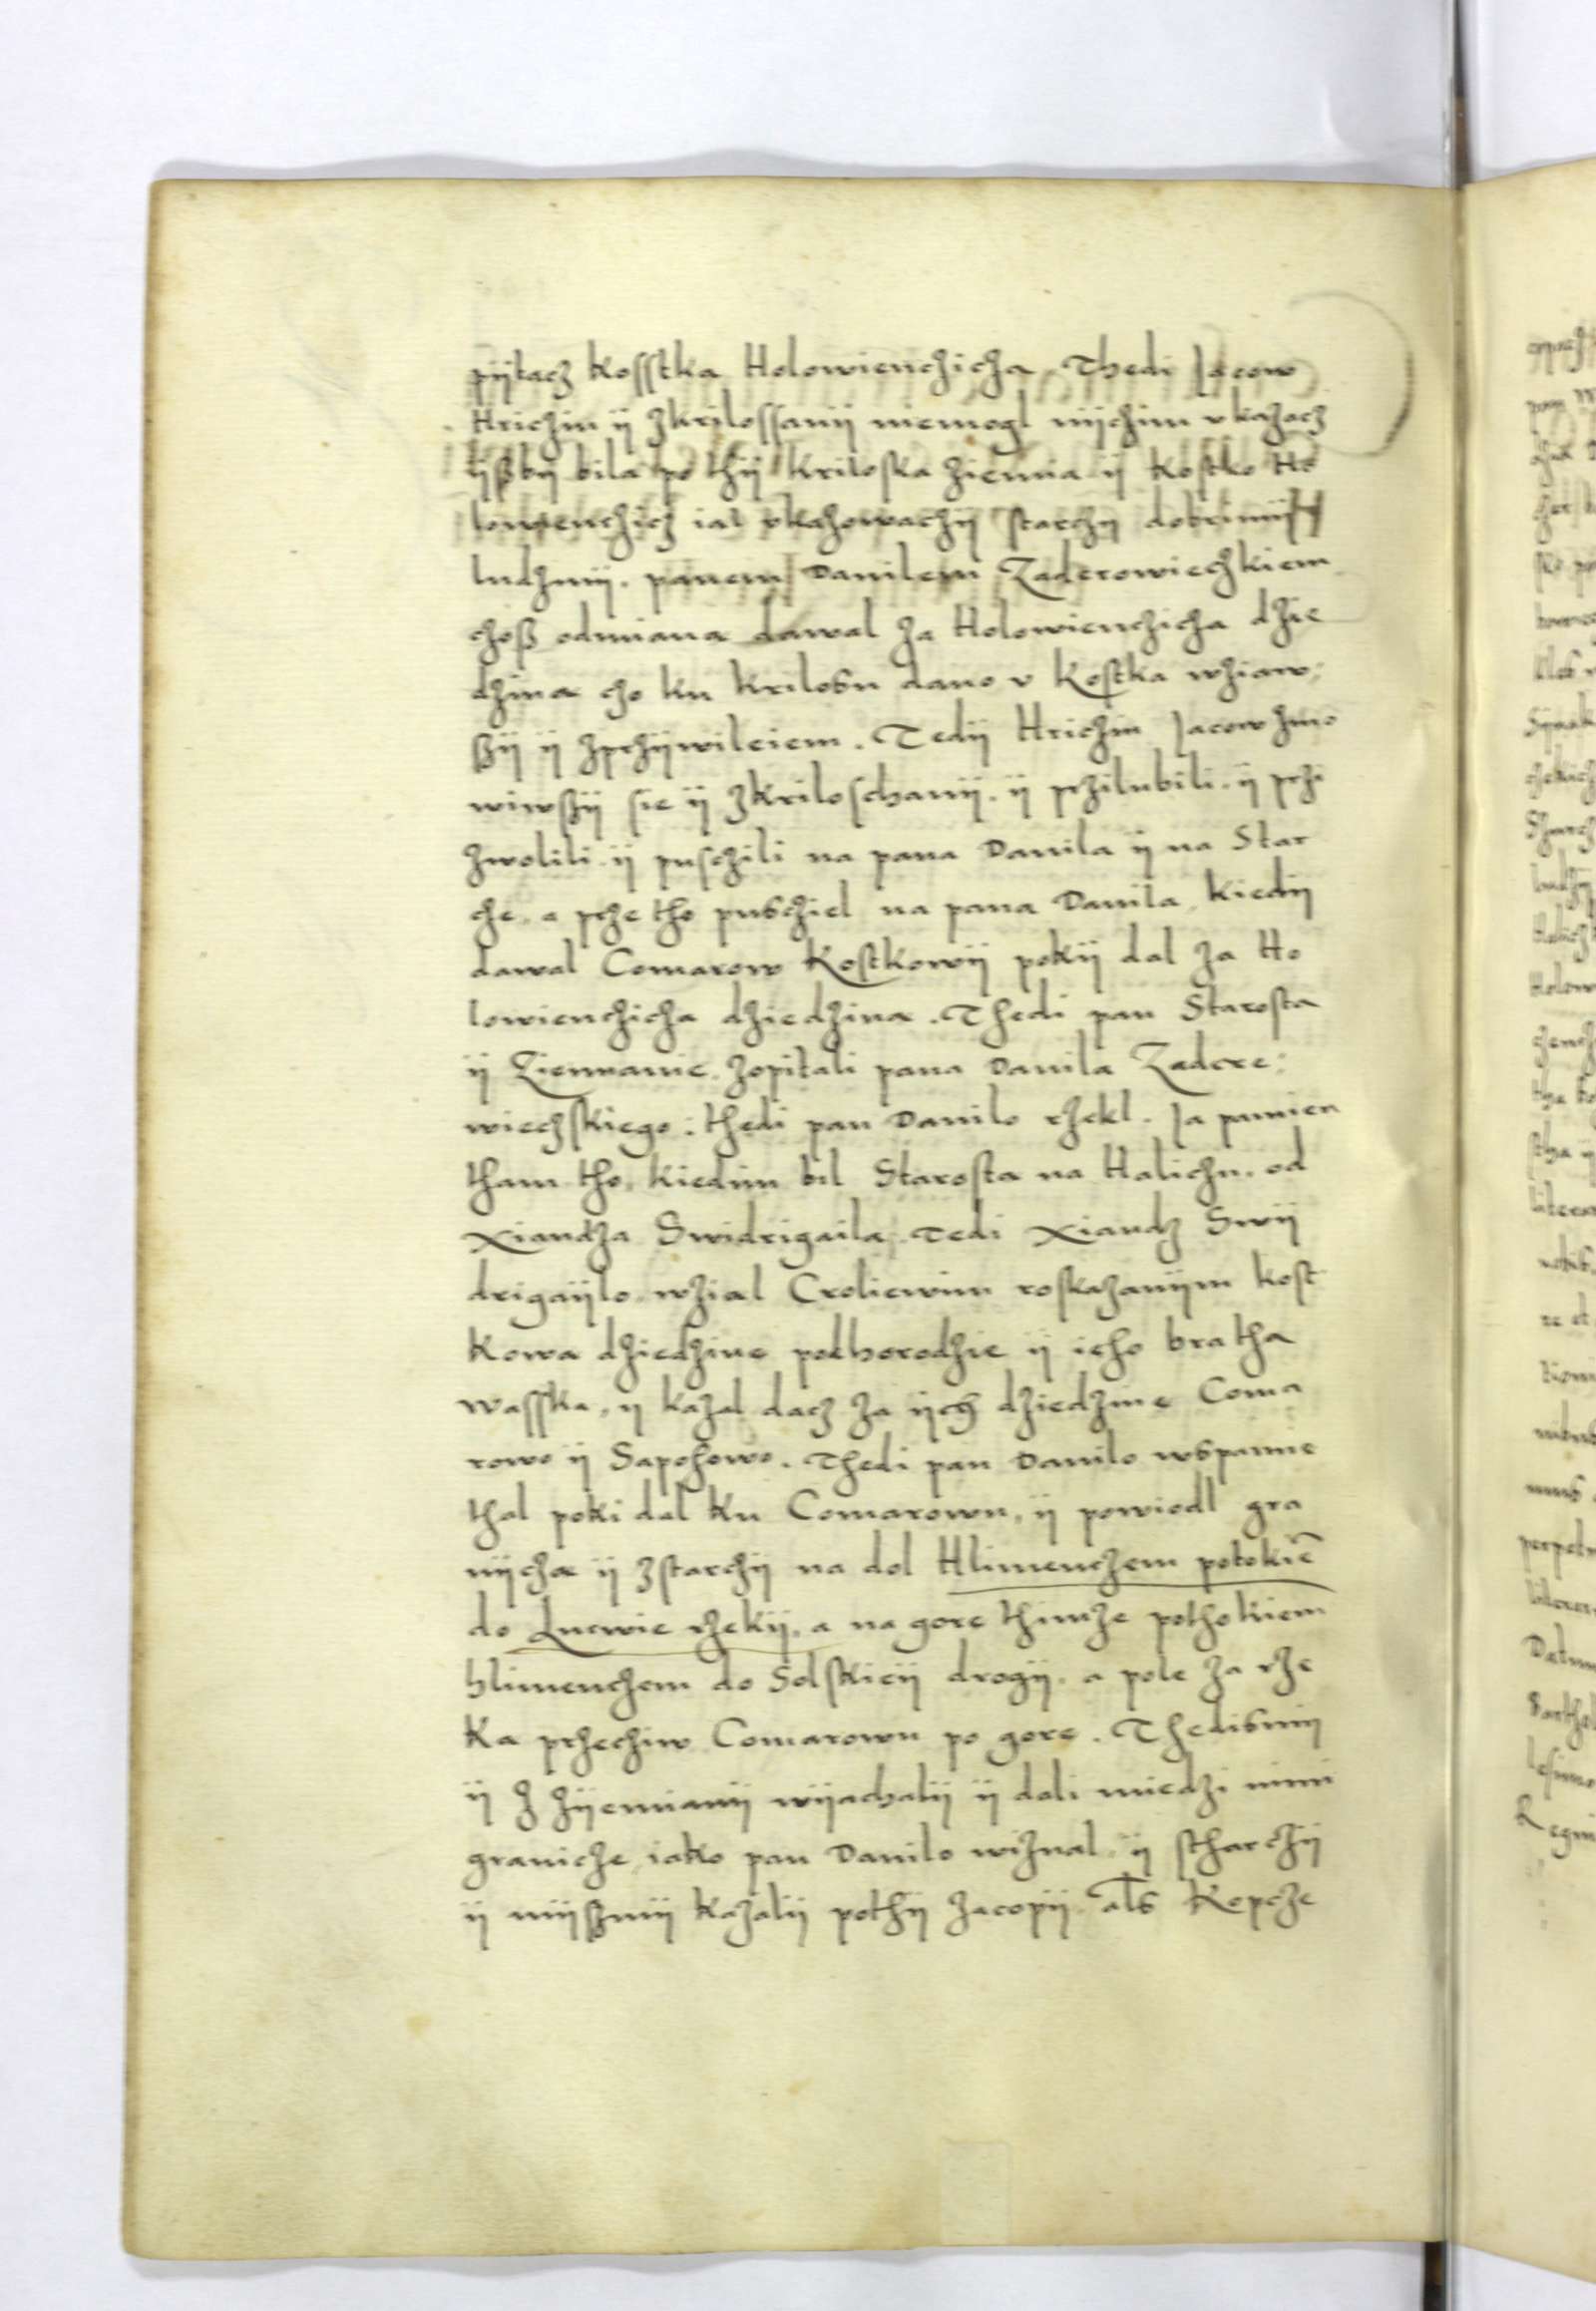 pÿtacz Kosstka Holowienczicza. Thedi Jacow
Hriczin ÿ zkrilossanÿ niemogl nÿczim vkazacz
ÿßbÿ bila po thÿ kriloska ziemia ÿ Kostko Ho
lowienczicz ial vkazowaczÿ starczÿ dobrimÿ
ludzmÿ. panem Danilem Zaderowieczkiem
czoß odmiana dawal za Holowienczicza dzie
dzina czo ku krilosu dano v Kostka wziaw:
ßÿ ÿ zprzÿwileiem. Tedÿ Hriczin Jacow zmo
wiwszÿ sie ÿ zkriloschanÿ. ÿ przilubili. ÿ przi
zwolili. ÿ pusczili na pana Danila ÿ na Star
cze. a prze tho puscziel na pana Danila, kiedÿ
dawal Comarow Kostkowÿ pokÿ dal za Ho
lowienczicza dziedzina. Thedi pan Starosta
ÿ Ziemianie. zopitali pana Danila Zadere:
wieczskiego: thedi pan Danilo rzekl. Ja pamien
tham tho, kiedim bil Starosta na Haliczu. od
Xiandza Swidrigaila. Tedi Xiandz Swÿ
drigaÿlo wzial Croliewim roskazanÿm kost
kowa dziedzine podhorodzie ÿ icho bratha
Wasska, ÿ kazal dacz za ÿch dziedzine Coma
rowo ÿ Sapohowo. Thedi pan Danilo wspamie
thal poki dal ku Comarowu, ÿ powiodl gra
nÿcza ÿ zstarczÿ na dol Hlimenczem potokiē
do Lucwie rzekÿ, a na gore thimze pothokiem
hlimenczem do Solskieÿ drogÿ. a pole za rze
ka przecziw Comarowu po gore. Thedismÿ
ÿ z zÿemianÿ wÿachalÿ ÿ dali miedzi nimi
granicze, iako pan Danilo wiznal, ÿ stharczÿ
ÿ mÿßmÿ kazalÿ pothÿ zacopÿ. als Kopcze